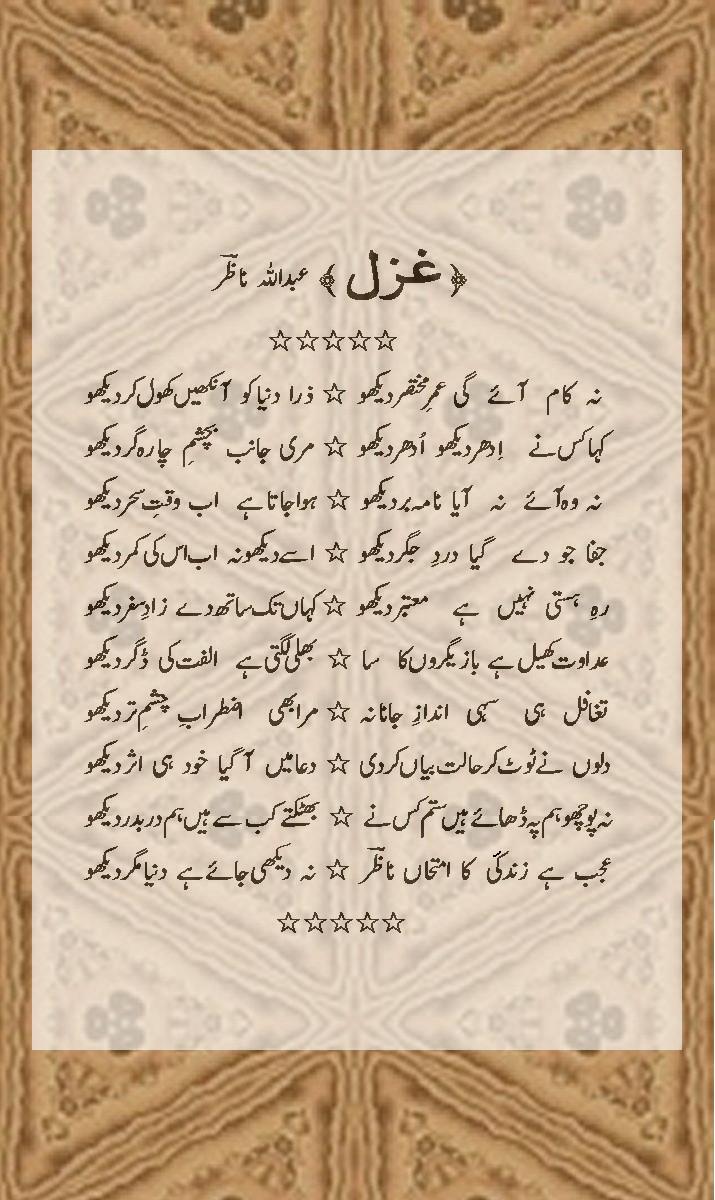 ﴿غزل﴾ عبداللہ ناظرؔ
☆☆☆☆☆
نہ کام آئے گی عمرِ مختصر دیکھو ☆ ذرا دنیا کو آنکھیں کھول کر دیکھو
کہا کس نے اِدھر دیکھو اُدھر دیکھو ☆ مری جانب بچشمِ چارہ گر دیکھو
نہ وہ آئے نہ آیا نامہ بر دیکھو ☆ ہوا جاتا ہے اب وقتِ سحر دیکھو
جفا جو دے گیا دردِ جگر دیکھو ☆ اسے دیکھو نہ اب اس کی کمر دیکھو
رہِ ہستی نہیں ہے معتبر دیکھو ☆ کہاں تک ساتھ دے زادِ سفر دیکھو
عداوت کھیل ہے بازیگروں کا سا ☆ بھلی لگتی ہے الفت کی ڈگر دیکھو
تغافل ہی سہی اندازِ جانانہ ☆ مرا بھی اضطرابِ چشمِ تر دیکھو
دلوں نے ٹوٹ کر حالت بیاں کر دی ☆ دعا میں آ گیا خود ہی اثر دیکھو
نہ پوچھو ہم پہ ڈھائے ہیں ستم کس نے ☆ بھٹکتے کب سے ہیں ہم در بدر دیکھو
عجب ہے زندگی کا امتحاں ناظرؔ ☆ نہ دیکھی جائے ہے دنیا مگر دیکھو
☆☆☆☆☆